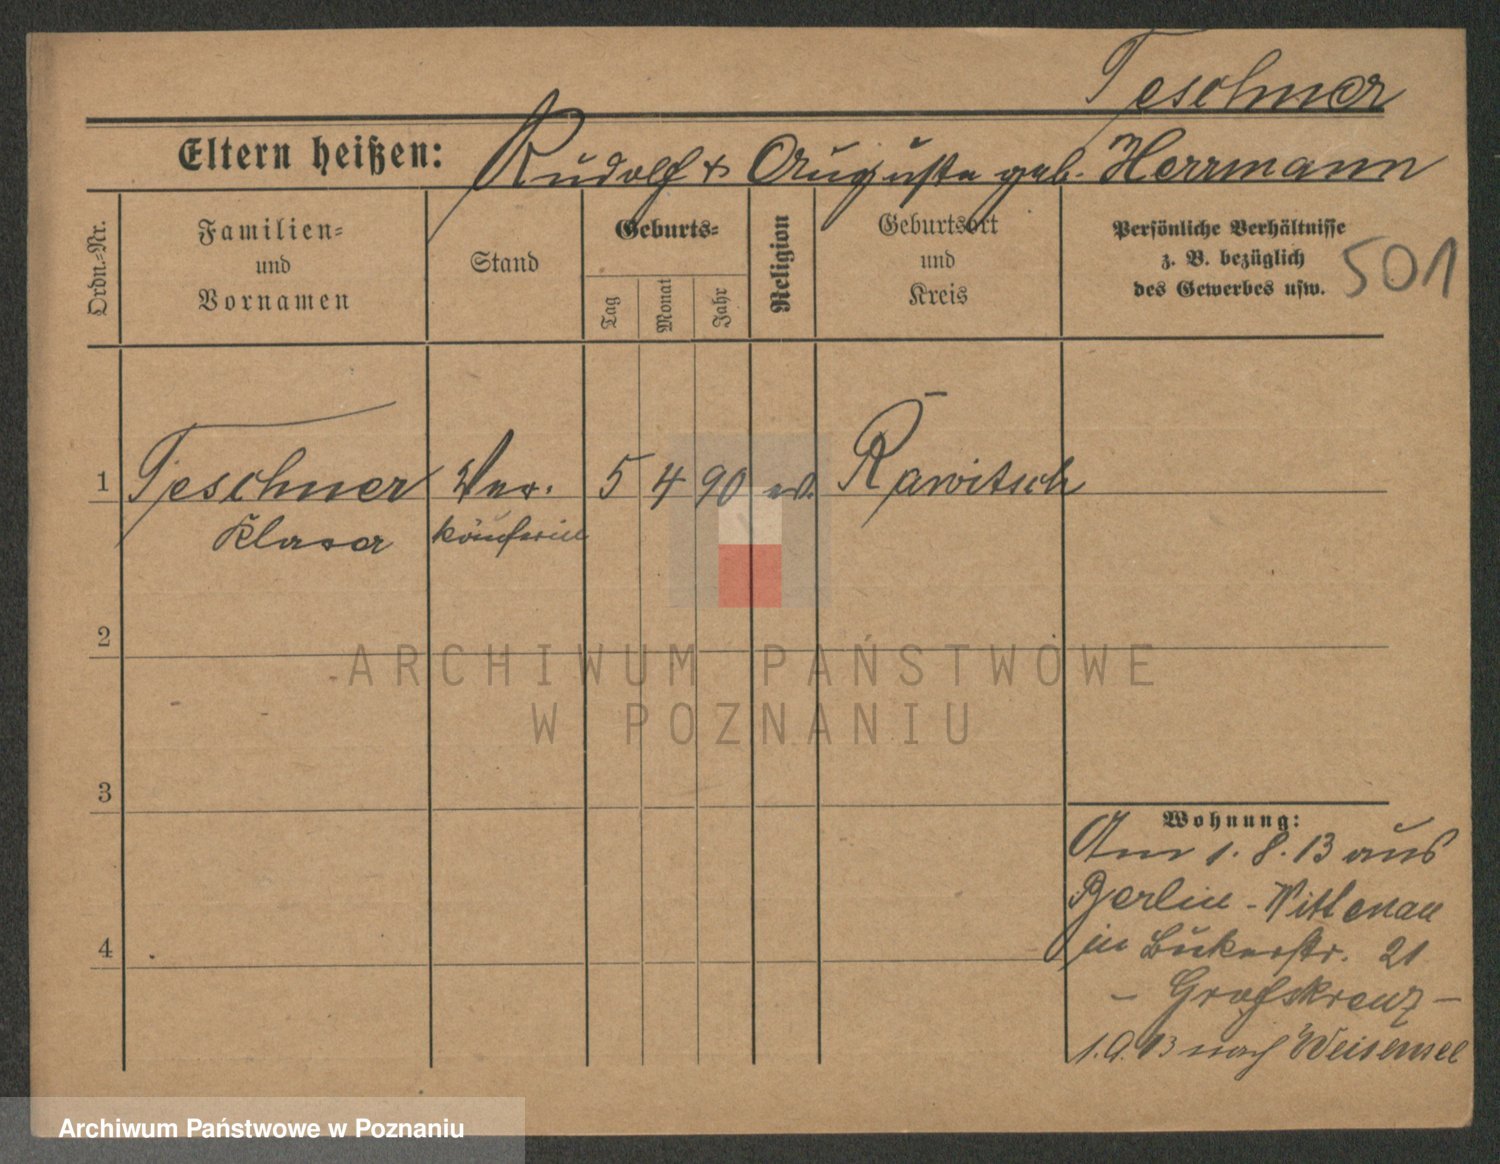 Teschner
Eltern heißen: Rudolf & Auguste geb. Herrmann
Ordn.-Nr.
Familien-
und
Vornamen
Stand
Geburts-
Tag
Monat
Jahr
Religion
Geburtsort
und
Kreis
Persönliche Verhältnisse
z. B. bezüglich
des Gewerbes usw.
501
1 Teschner Ver. 5 4 90 ev. Rawitsch
Klara käuferin
2
ARCHIWUM PAŃSTWOWE
W POZNANIU
3
Wohnung:
Am 1. 8. 13 aus
Berlin - Wittenau
in Bukerstr. 21
4
1. 9. 13 nach Weisensee
Archiwum Państwowe w Poznaniu